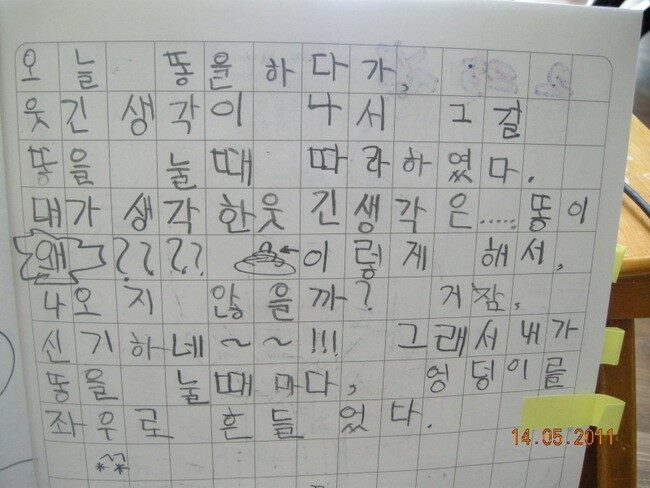 오늘 똥을하다가,
웃긴 생각이 나서 그걸
똥을 눌때 따라하였다.
내가 생각한웃긴생각은..... 똥이
왜???? 이렇제 해서,
나오지 않을까? 거잠,
신기하네~~!!! 그래서내가
똥을 눌때마다, 엉덩이를
좌우로 흔들었다.
14.05.2011